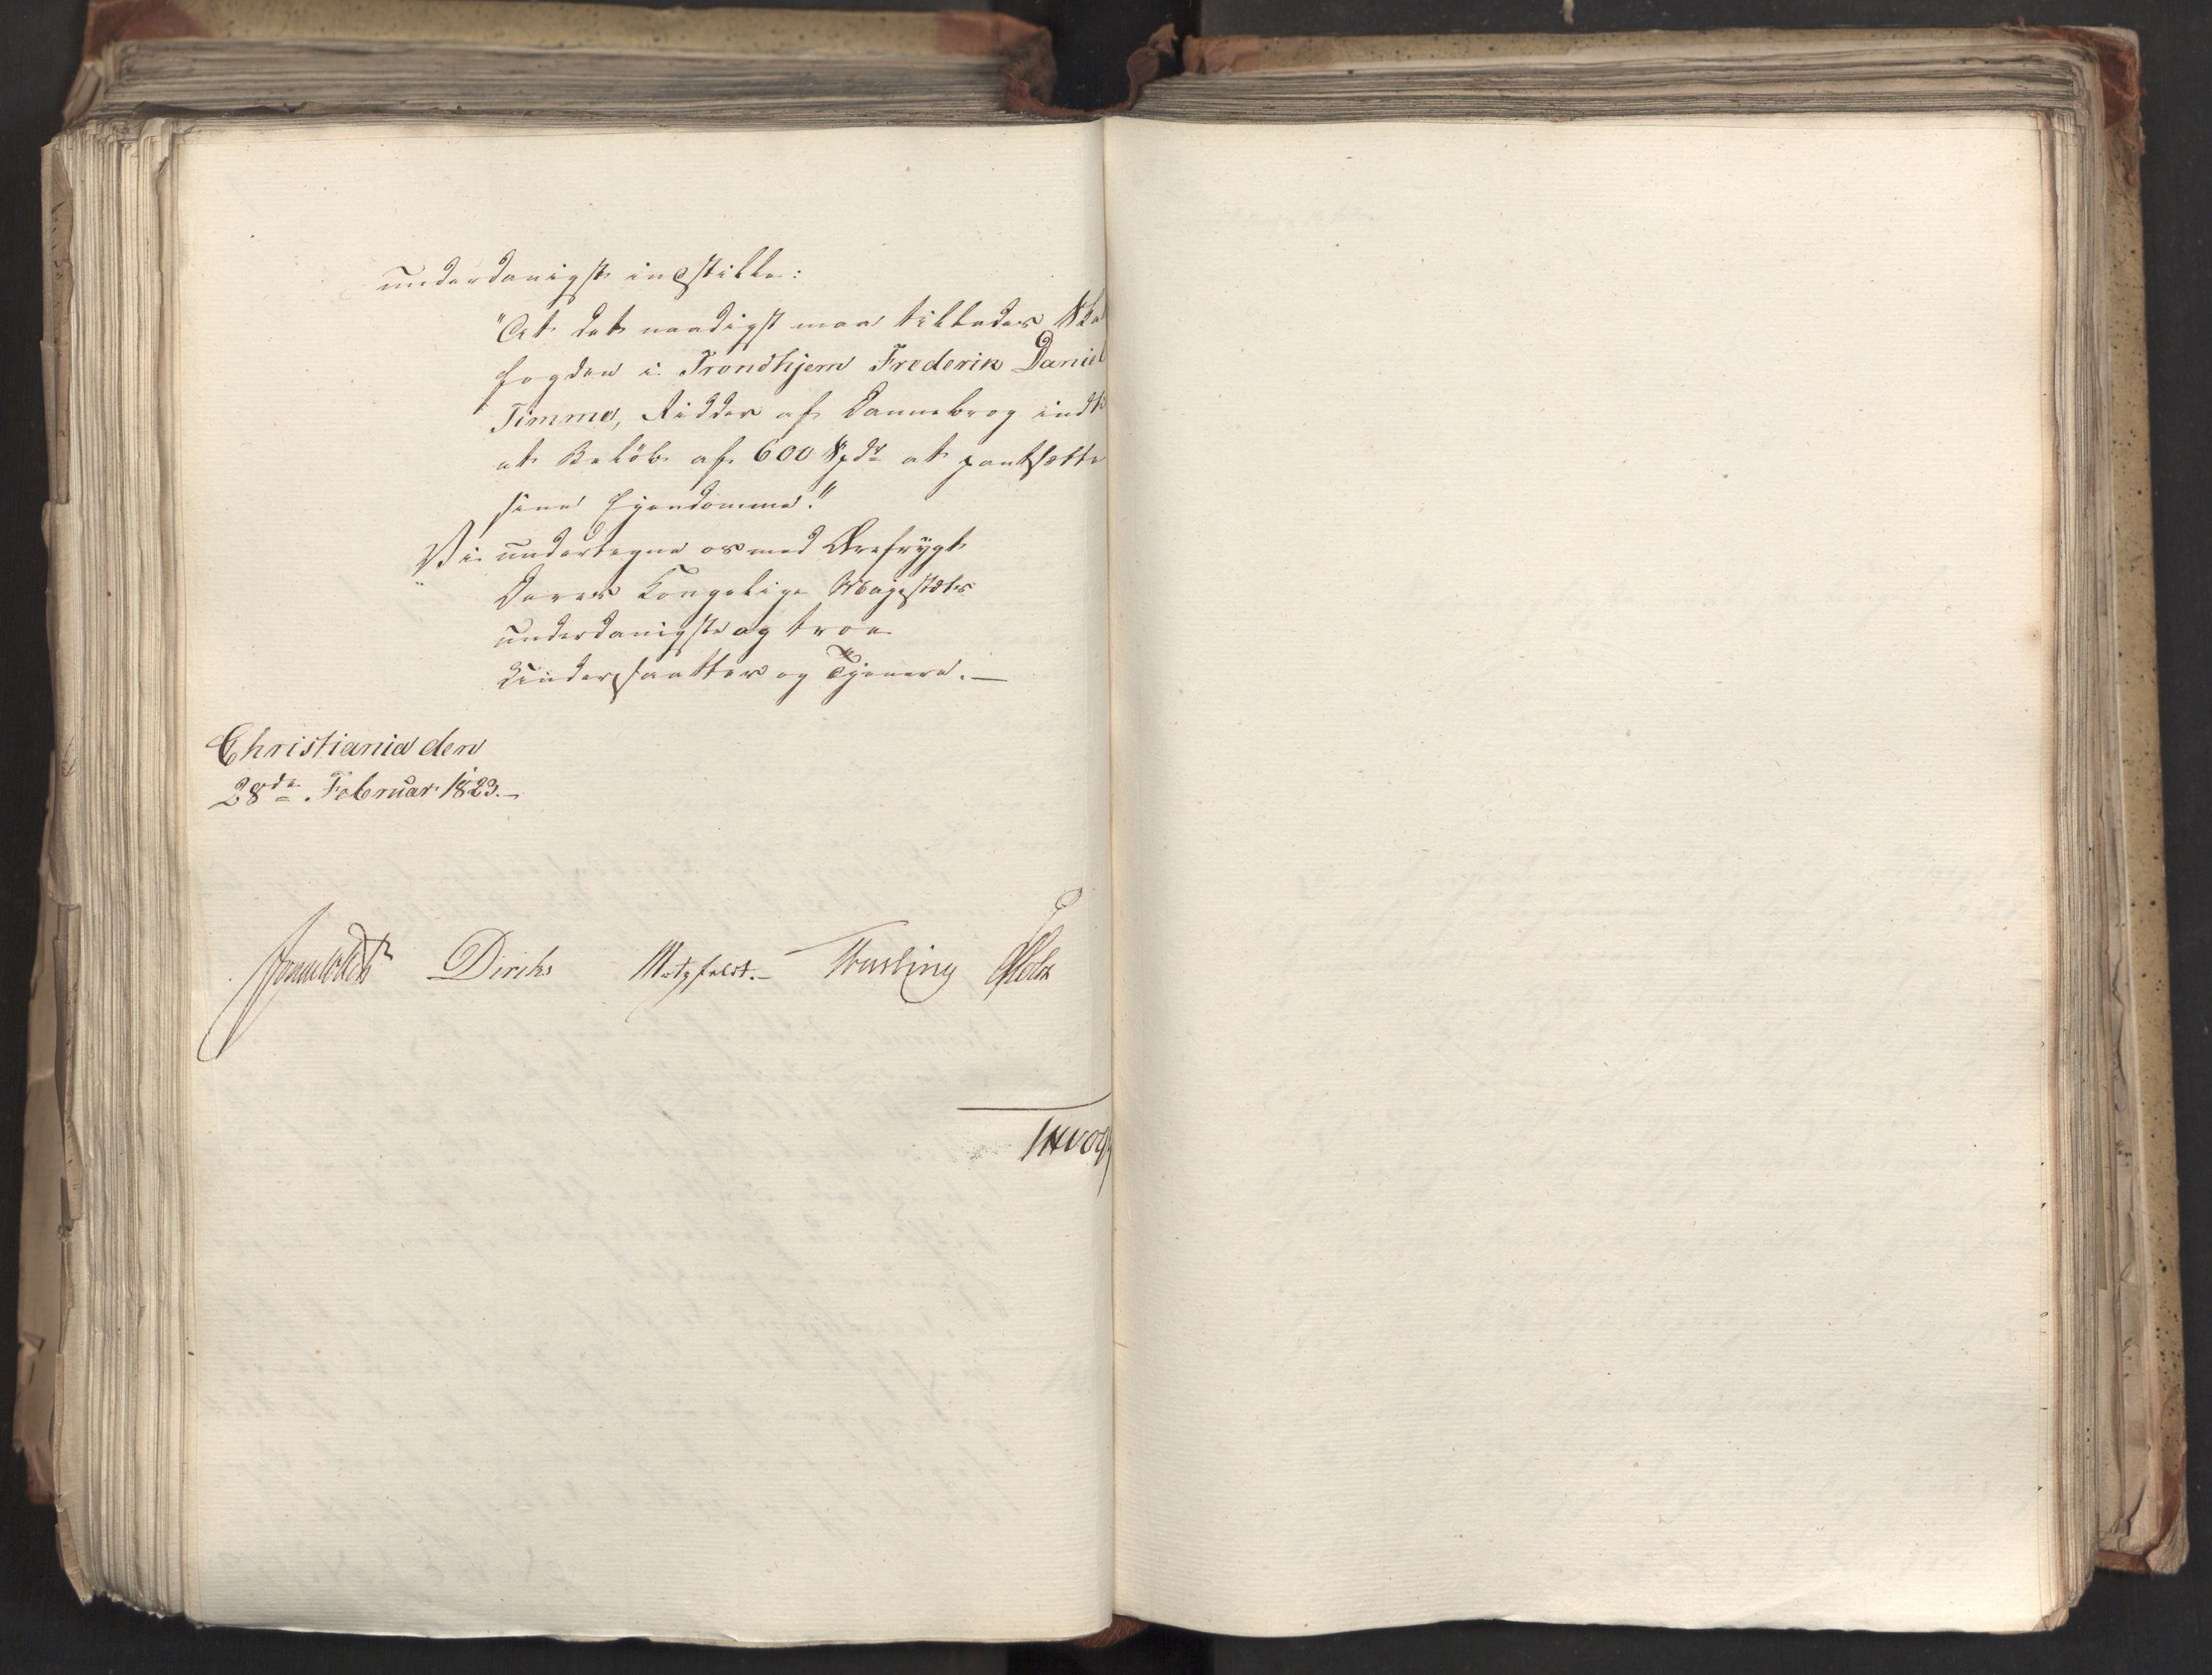 underdanigst indstille:
"At det naadigst maa tillades
fogden i Trondhjem Frederik Daniel
Timme, Ridder af Dannebrog indtil
et Beløb af 600 Spd at pantsætte
sine Ejendomme."
Vi undertegne os med Ærefrygt
Deres Kongelige Majestæts
underdanigste og troe
Undersaatter og Tjenere.—
Christiania den
28de Februar 1823.—
Sommerhielm Diriks Motzfeldt.— Treschow Holst